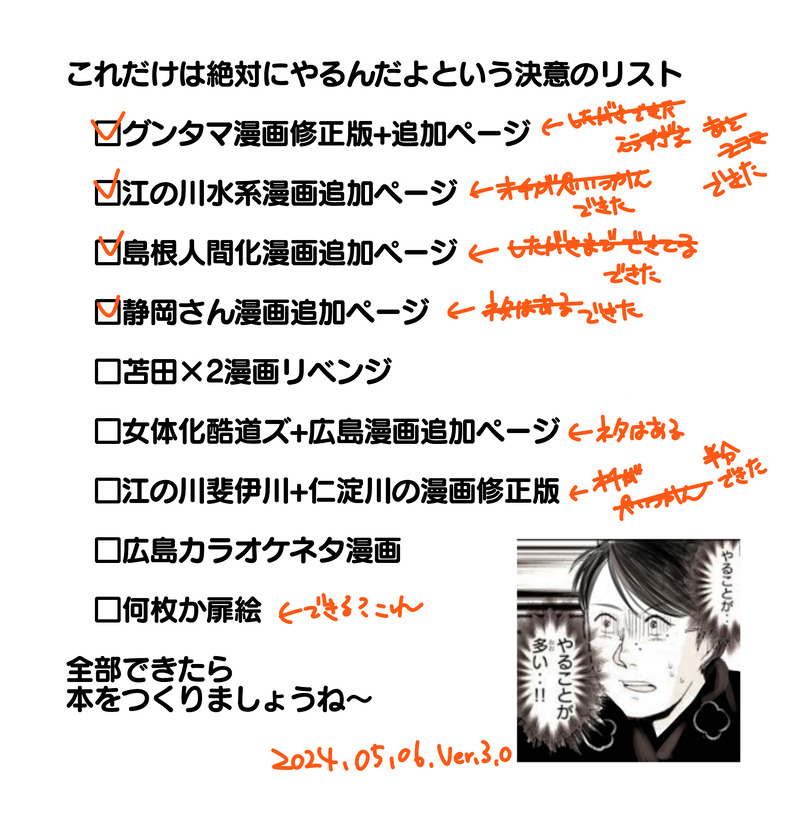 これだけは絶対にやるんだよという決意のリスト
☑グンタマ漫画修正版+追加ページ ← したがきできた
あと
2コマ
できた
☑江の川水系漫画追加ページ ←
できた
☑島根人間化漫画追加ページ ← したがきまでできてる
できた
☑静岡さん漫画追加ページ ← ネタはある できた
□苫田×2漫画リベンジ
□女体化酷道ズ+広島漫画追加ページ ← ネタはある
□江の川斐伊川+仁淀川の漫画修正版 ←
半分
できた
□広島カラオケネタ漫画
□何枚か扉絵 ← できる?これ
全部できたら
本をつくりましょうね〜
やることが‥
やることが
多い‥!!
おお
2024.05.06.Ver.3.0